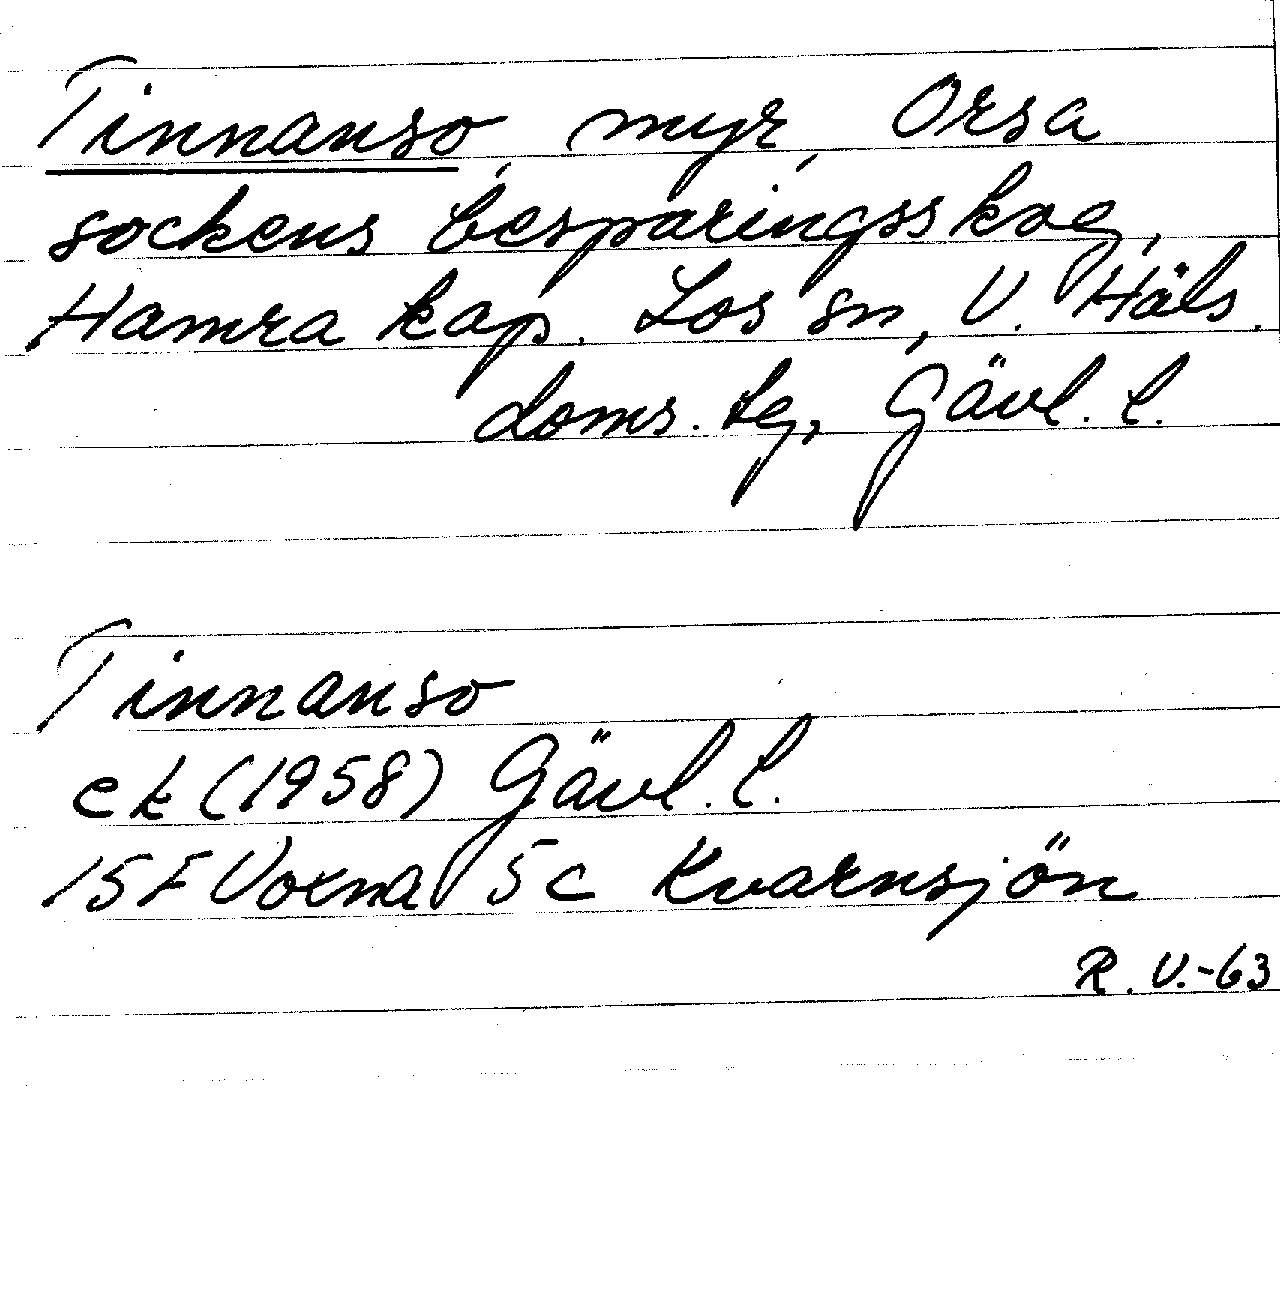 Tinnanso, myr, Orsa
sockens besparingsskog,
Hamra kap. Los sn, V. Häls.
doms. lg, Gävl. l.
Tinnanso
ek (1958) Gävl. l.
15F Voxna 5c Kvarnsjön
R. V.-63